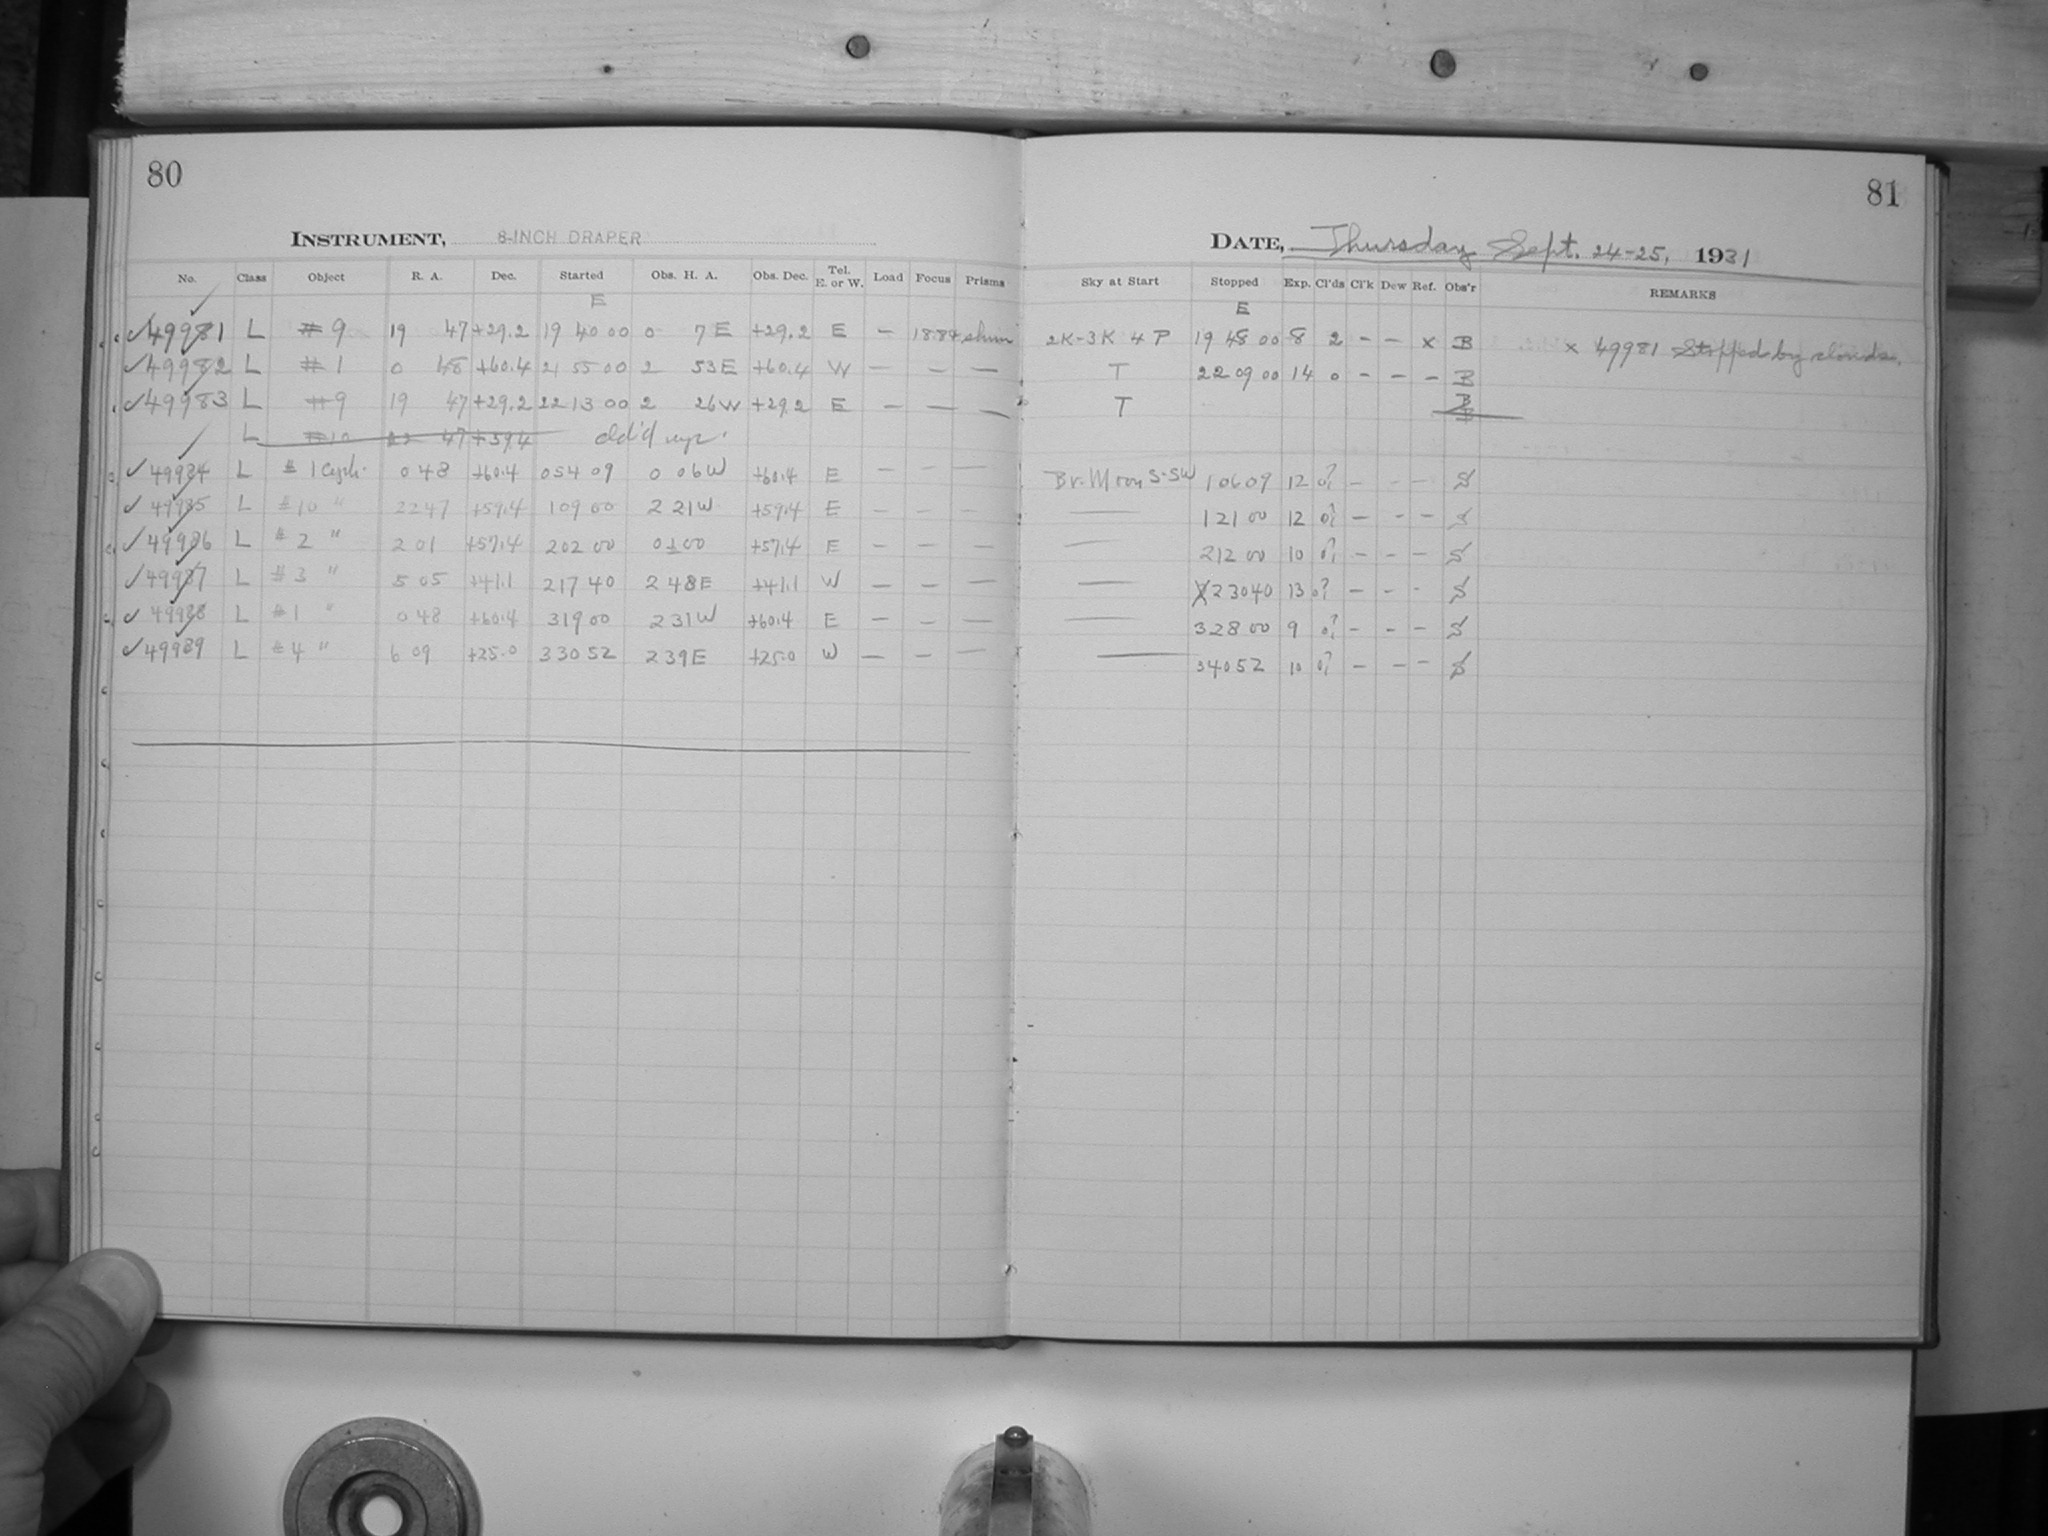 80
INSTRUMENT, 8-INCH DRAPER
No. Class Object R. A. Dec. Started Obs. H. A. Obs. Dec. Tel. E. or W. Load Focus Prisms
E
✓49981 L #9 19 47 +29.2 19 40 00 0 7 E +29.2 E – 18.84
✓49982 L #1 0 48 +60.4 21 55 00 2 53 E +60.4 W – – –
✓49983 L #9 19 47 +29.2 22 13 00 2 26 W +29.2 E – – –
L #10 22 47 +59.4 cld'd up.
✓49984 L #1 Ceph. 0 48 +60.4 0 54 09 0 06 W +60.4 E – – –
✓49985 L #10 " 22 47 +59.4 1 09 00 2 21 W +59.4 E – – –
✓49986 L #2 " 2 01 +57.4 2 02 00 0 1 00 +57.4 E – – –
✓49987 L #3 " 5 05 +41.1 2 17 40 2 48 E +41.1 W – – –
✓49988 L #1 " 0 48 +60.4 3 19 00 2 31 W +60.4 E – – –
✓49989 L #4 " 6 09 +25.0 3 30 52 2 39 E +25.0 W – – –
81
DATE, Thursday Sept. 24-25, 1931
Sky at Start Stopped Exp. Cl'ds Cl'k Dew Ref. Obs'r REMARKS
E
2K-3K 4 P 19 48 00 8 2 – – x B x 49981 Stopped by clouds.
T 22 09 00 14 0 – – – B
T B
Br. Moon S-SW 1 06 09 12 0? – – – S
— 1 21 00 12 0? – – – S
— 2 12 00 10 0? – – – S
— 2 30 40 13 0? – – – S
— 3 28 00 9 0? – – – S
— 3 40 52 10 0? – – – S